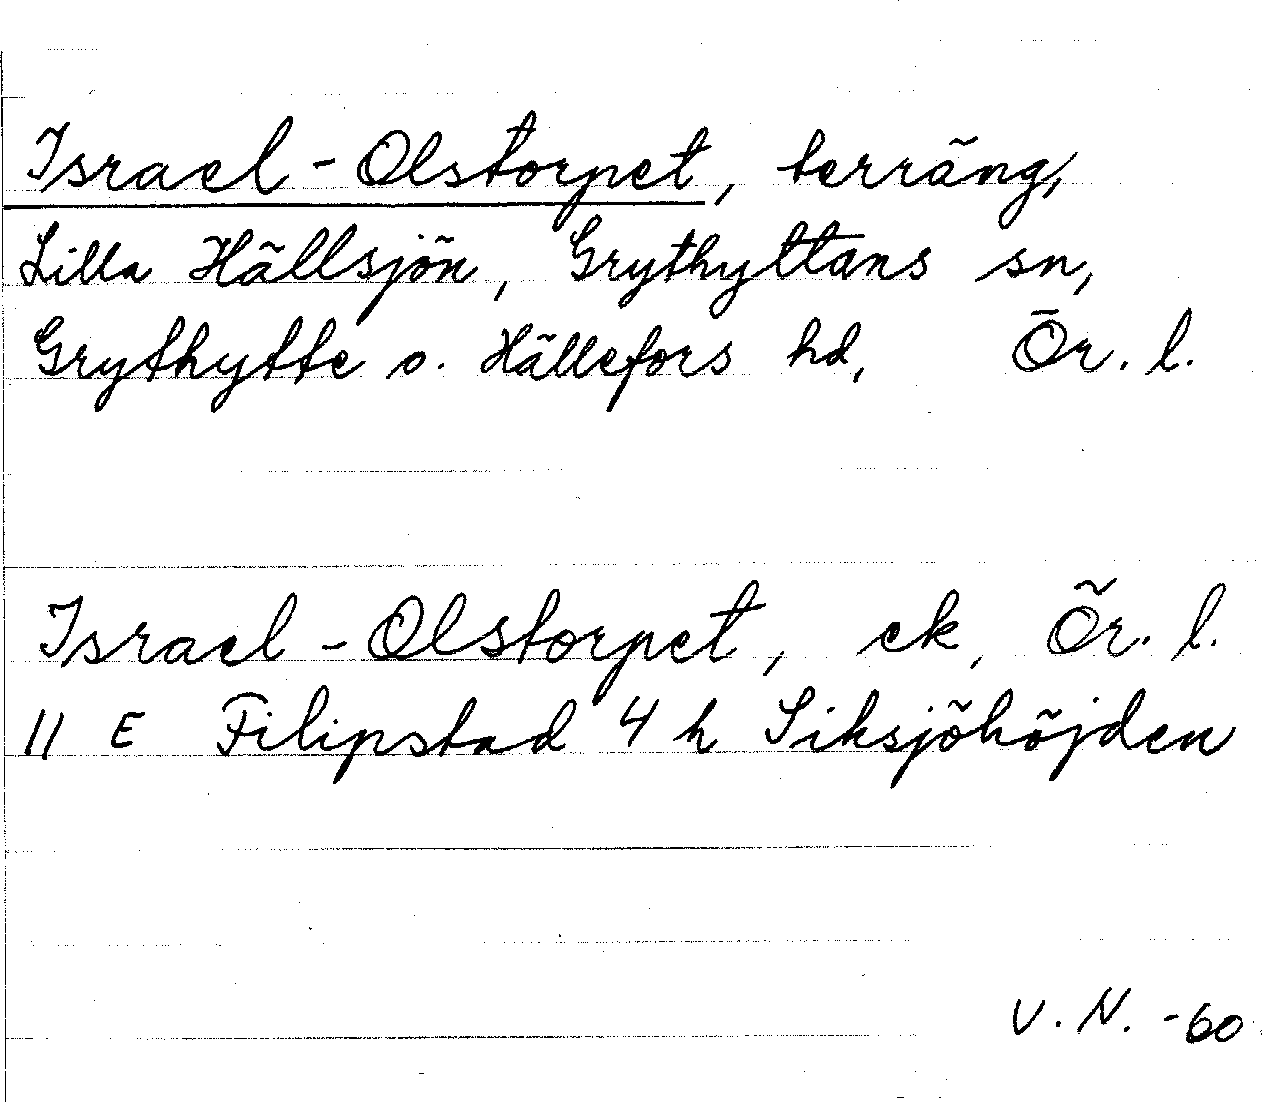 Israel-Olstorpet, terräng,
Lilla Hällsjön, Grythyttans sn,
Grythytte o. Hällefors hd, Ör. l.
Israel-Olstorpet, ek, Ör. l.
11 E Filipstad 4 h Siksjöhöjden
V. N. -60